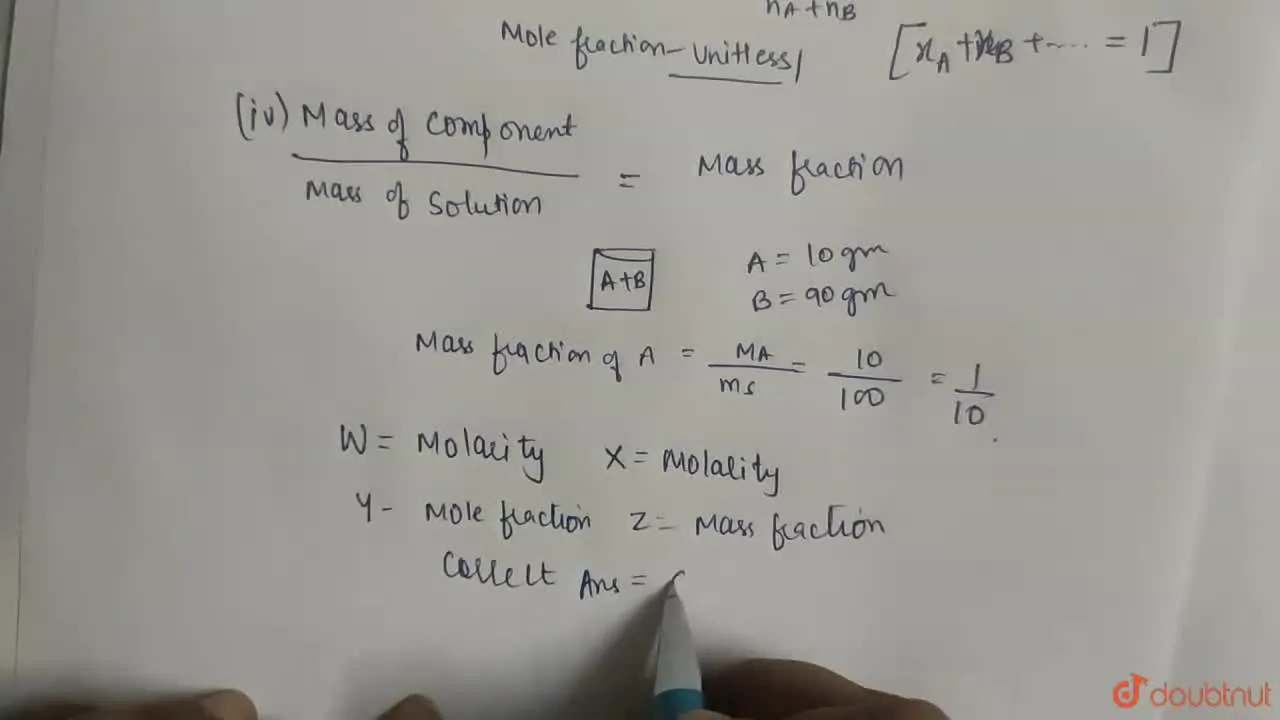 nA + nB
Mole fraction - Unitless/ [xA + xB + .... = 1]
(iv) Mass of Component
Mass of Solution
= Mass fraction
A+B
A = 10 gm
B = 90 gm
Mass fraction of A = MA/ms = 10/100 = 1/10.
W = Molarity X = Molality
Y - Mole fraction Z = Mass fraction
Correct Ans =
doubtnut